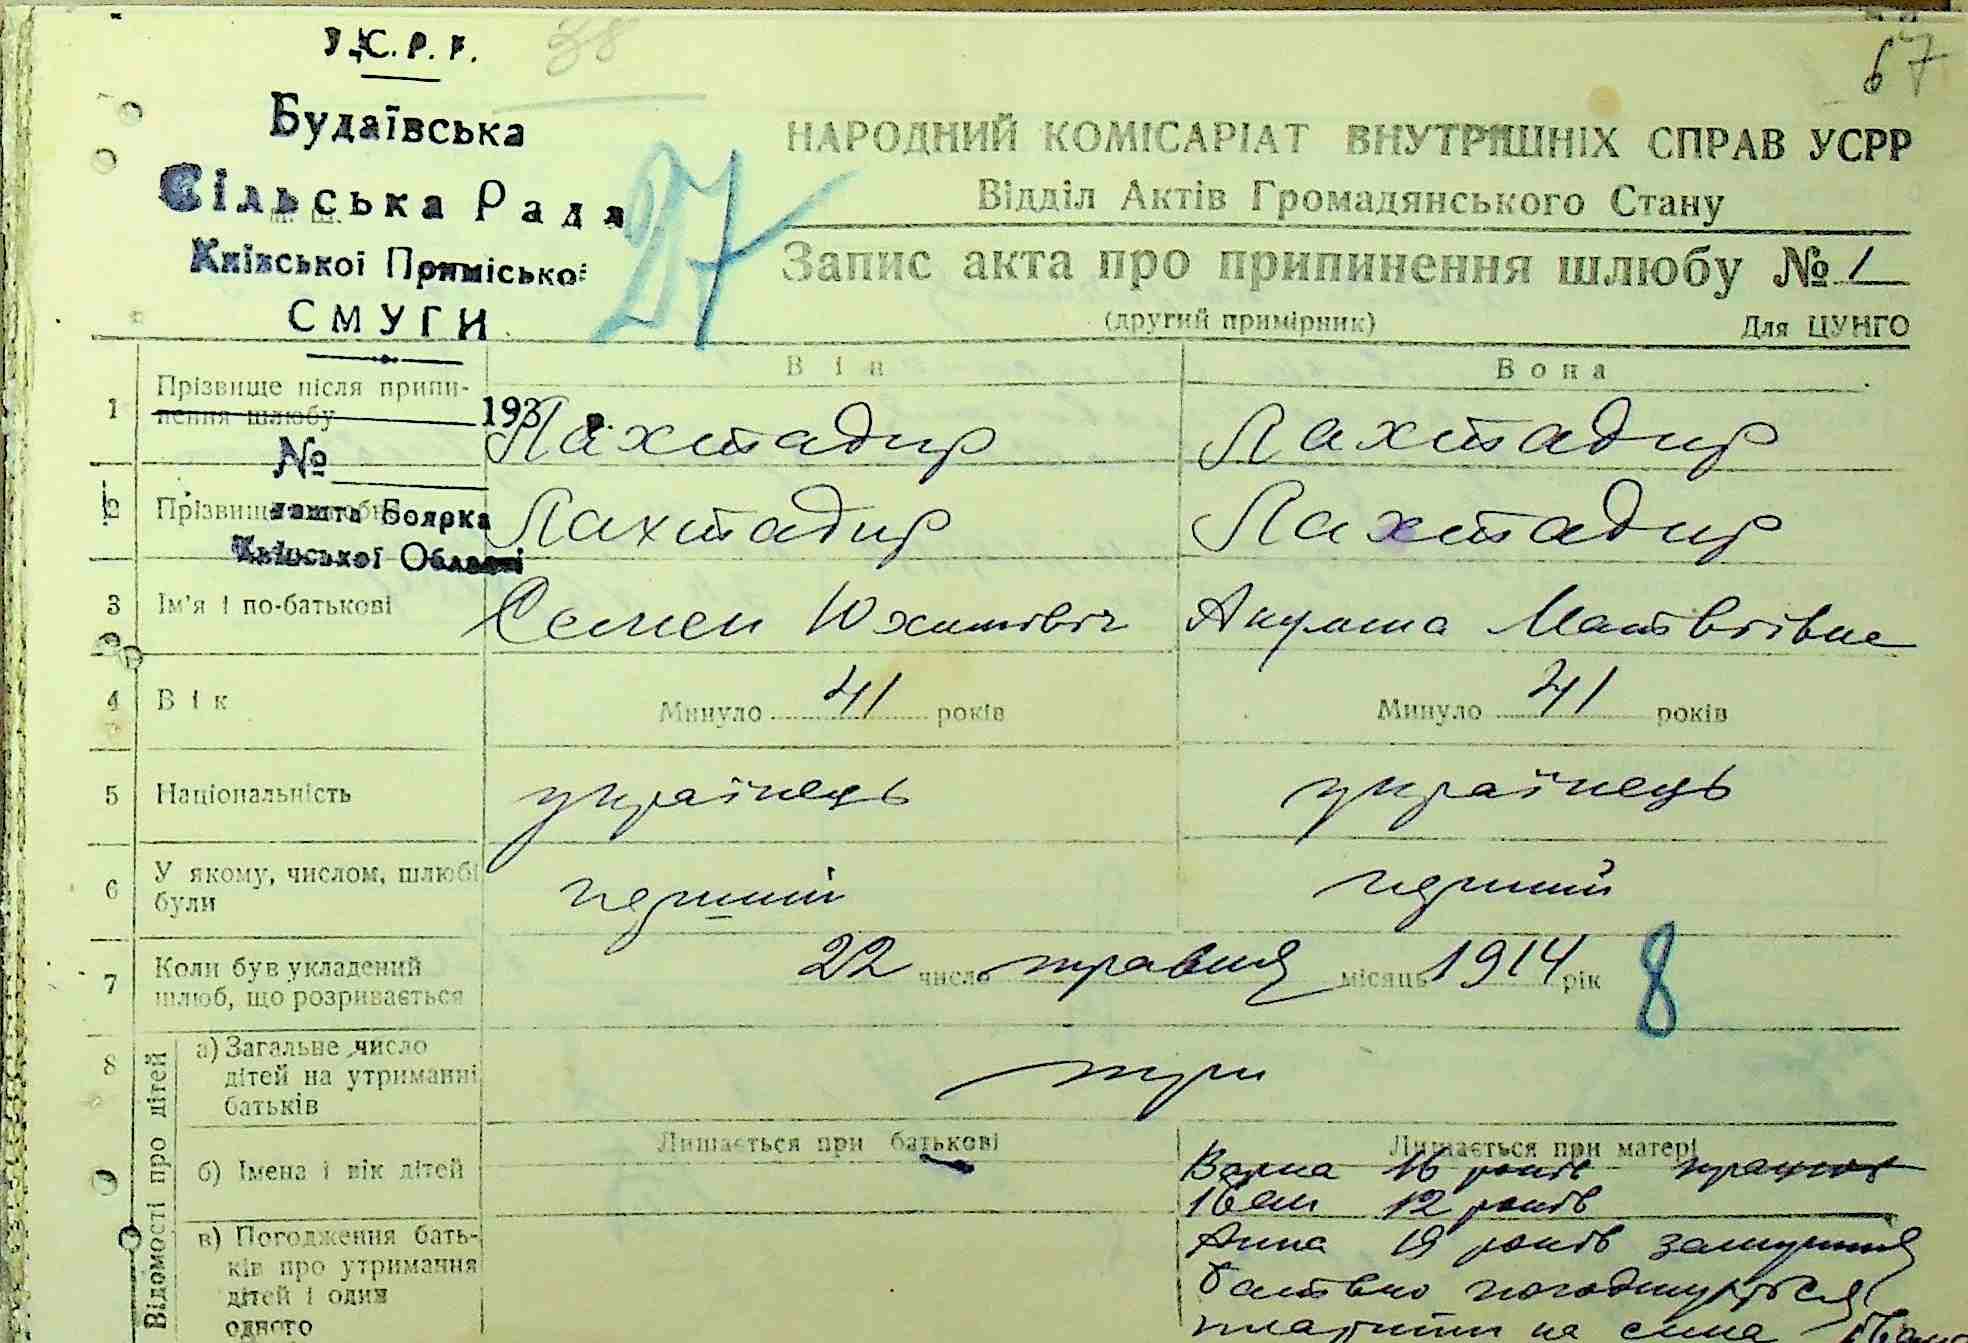 У.С.Р.Р.
38
67
Будаївська
Сільська Рада
Київської Приміської
СМУГИ
27
193 р.
№
пошта Боярка
Київської Області
НАРОДНИЙ КОМІСАРІАТ ВНУТРІШНІХ СПРАВ УСРР
Відділ Актів Громадянського Стану
Запис акта про припинення шлюбу № 1
(другий примірник) Для ЦУНГО
Він Вона
1 Прізвище після припи-
нення шлюбу Пахтадир Пахтадир
2 Прізвище Пахтадир Пахтадир
3 Ім'я і по-батькові Семен Юхимівіч Акулина Матвіівна
4 Вік Минуло 41 років Минуло 41 років
5 Національність українець українець
6 У якому, числом, шлюбі
були перший перший
7 Коли був укладений
шлюб, що розривається 22 число травня місяць 1914 рік 8
8 Відомості про дітей
а) Загальне число
дітей на утриманні
батьків три
Лишається при батькові Лишається при матері
б) Імена і вік дітей
16 років
Іван 12 років
в) Погодження бать-
ків про утримання
дітей і один
одного
Анна 19 років замужня
батько погоджується
платити на сина